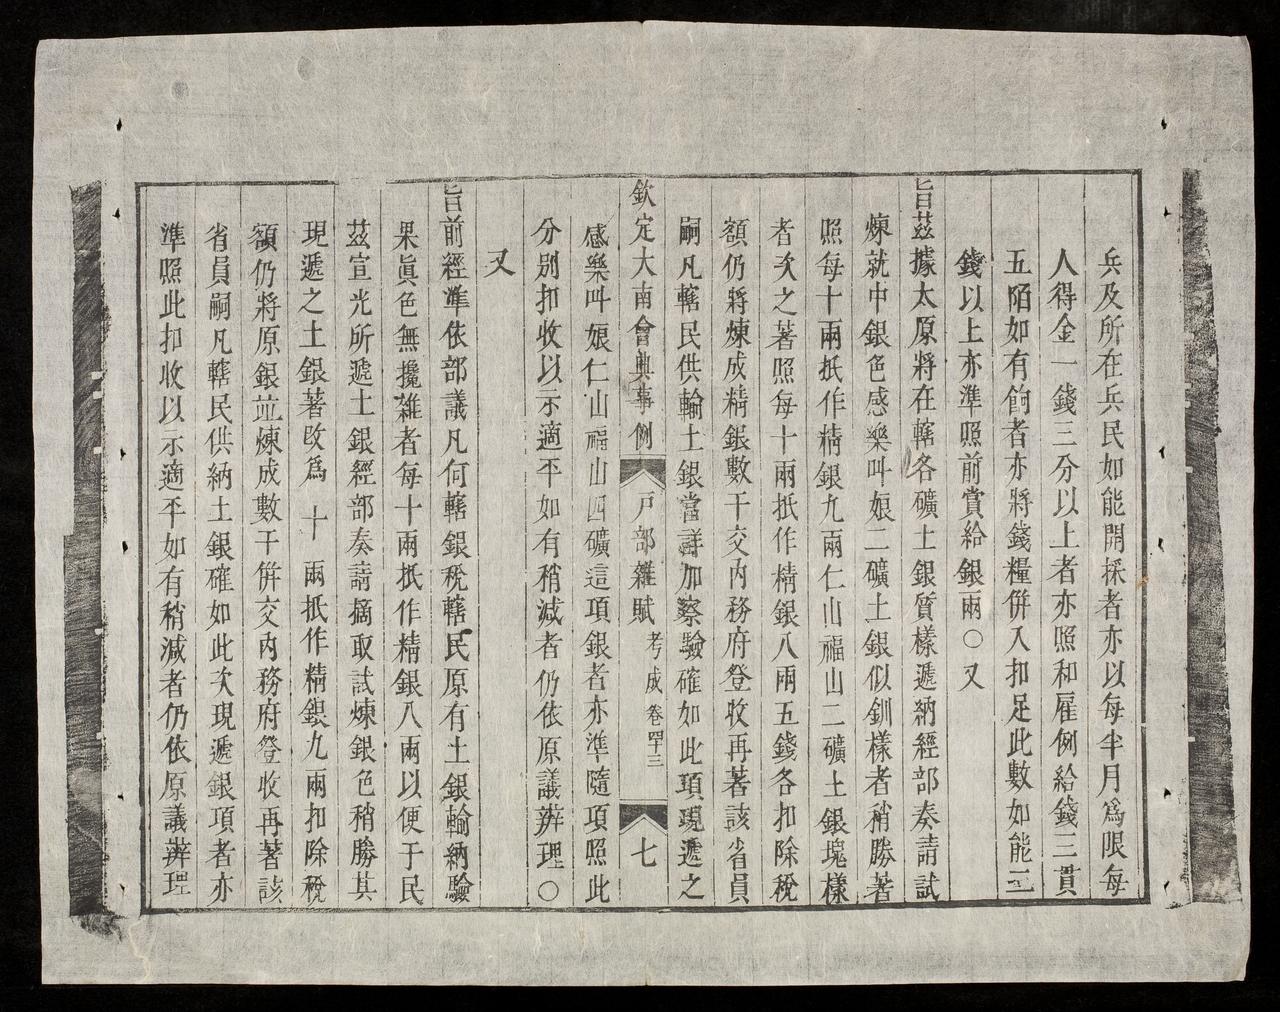 兵及所在兵民如能開採者亦以每半月爲限每
人得金一錢三分以上者亦照和雇例給錢三貫
五陌如有餉者亦將錢糧併入扣足此數如能三
錢以上亦準照前賞給銀兩〇又
旨茲據太原將在轄各礦土銀質樣遞納經部奏請試
煉就中銀色感樂叫娘二礦土銀似釧樣者稍勝著
照每十兩抵作精銀九兩仁山福山二礦土銀塊樣
者次之著照每十兩抵作精銀八兩五錢各扣除稅
額仍將煉成精銀數干交內務府登收再著該省員
嗣凡轄民供輸土銀當詳加察驗確如此項現遞之
欽定大南會典事例 戶部雜賦 考成 卷四十三 七
感樂叫娘仁山福山四礦這項銀者亦準隨項照此
分別扣收以示適平如有稍減者仍依原議辨理〇
又
旨前經準依部議凡何轄銀稅轄民原有土銀輸納驗
果眞色無攙雜者每十兩抵作精銀八兩以便于民
茲宣光所遞土銀經部奏請摘取試煉銀色稍勝其
現遞之土銀著改爲十兩抵作精銀九兩扣除稅
額仍將原銀並煉成數干併交內務府登收再著該
省員嗣凡轄民供納土銀確如此次現遞銀項者亦
準照此扣收以示適平如有稍減者仍依原議辨理